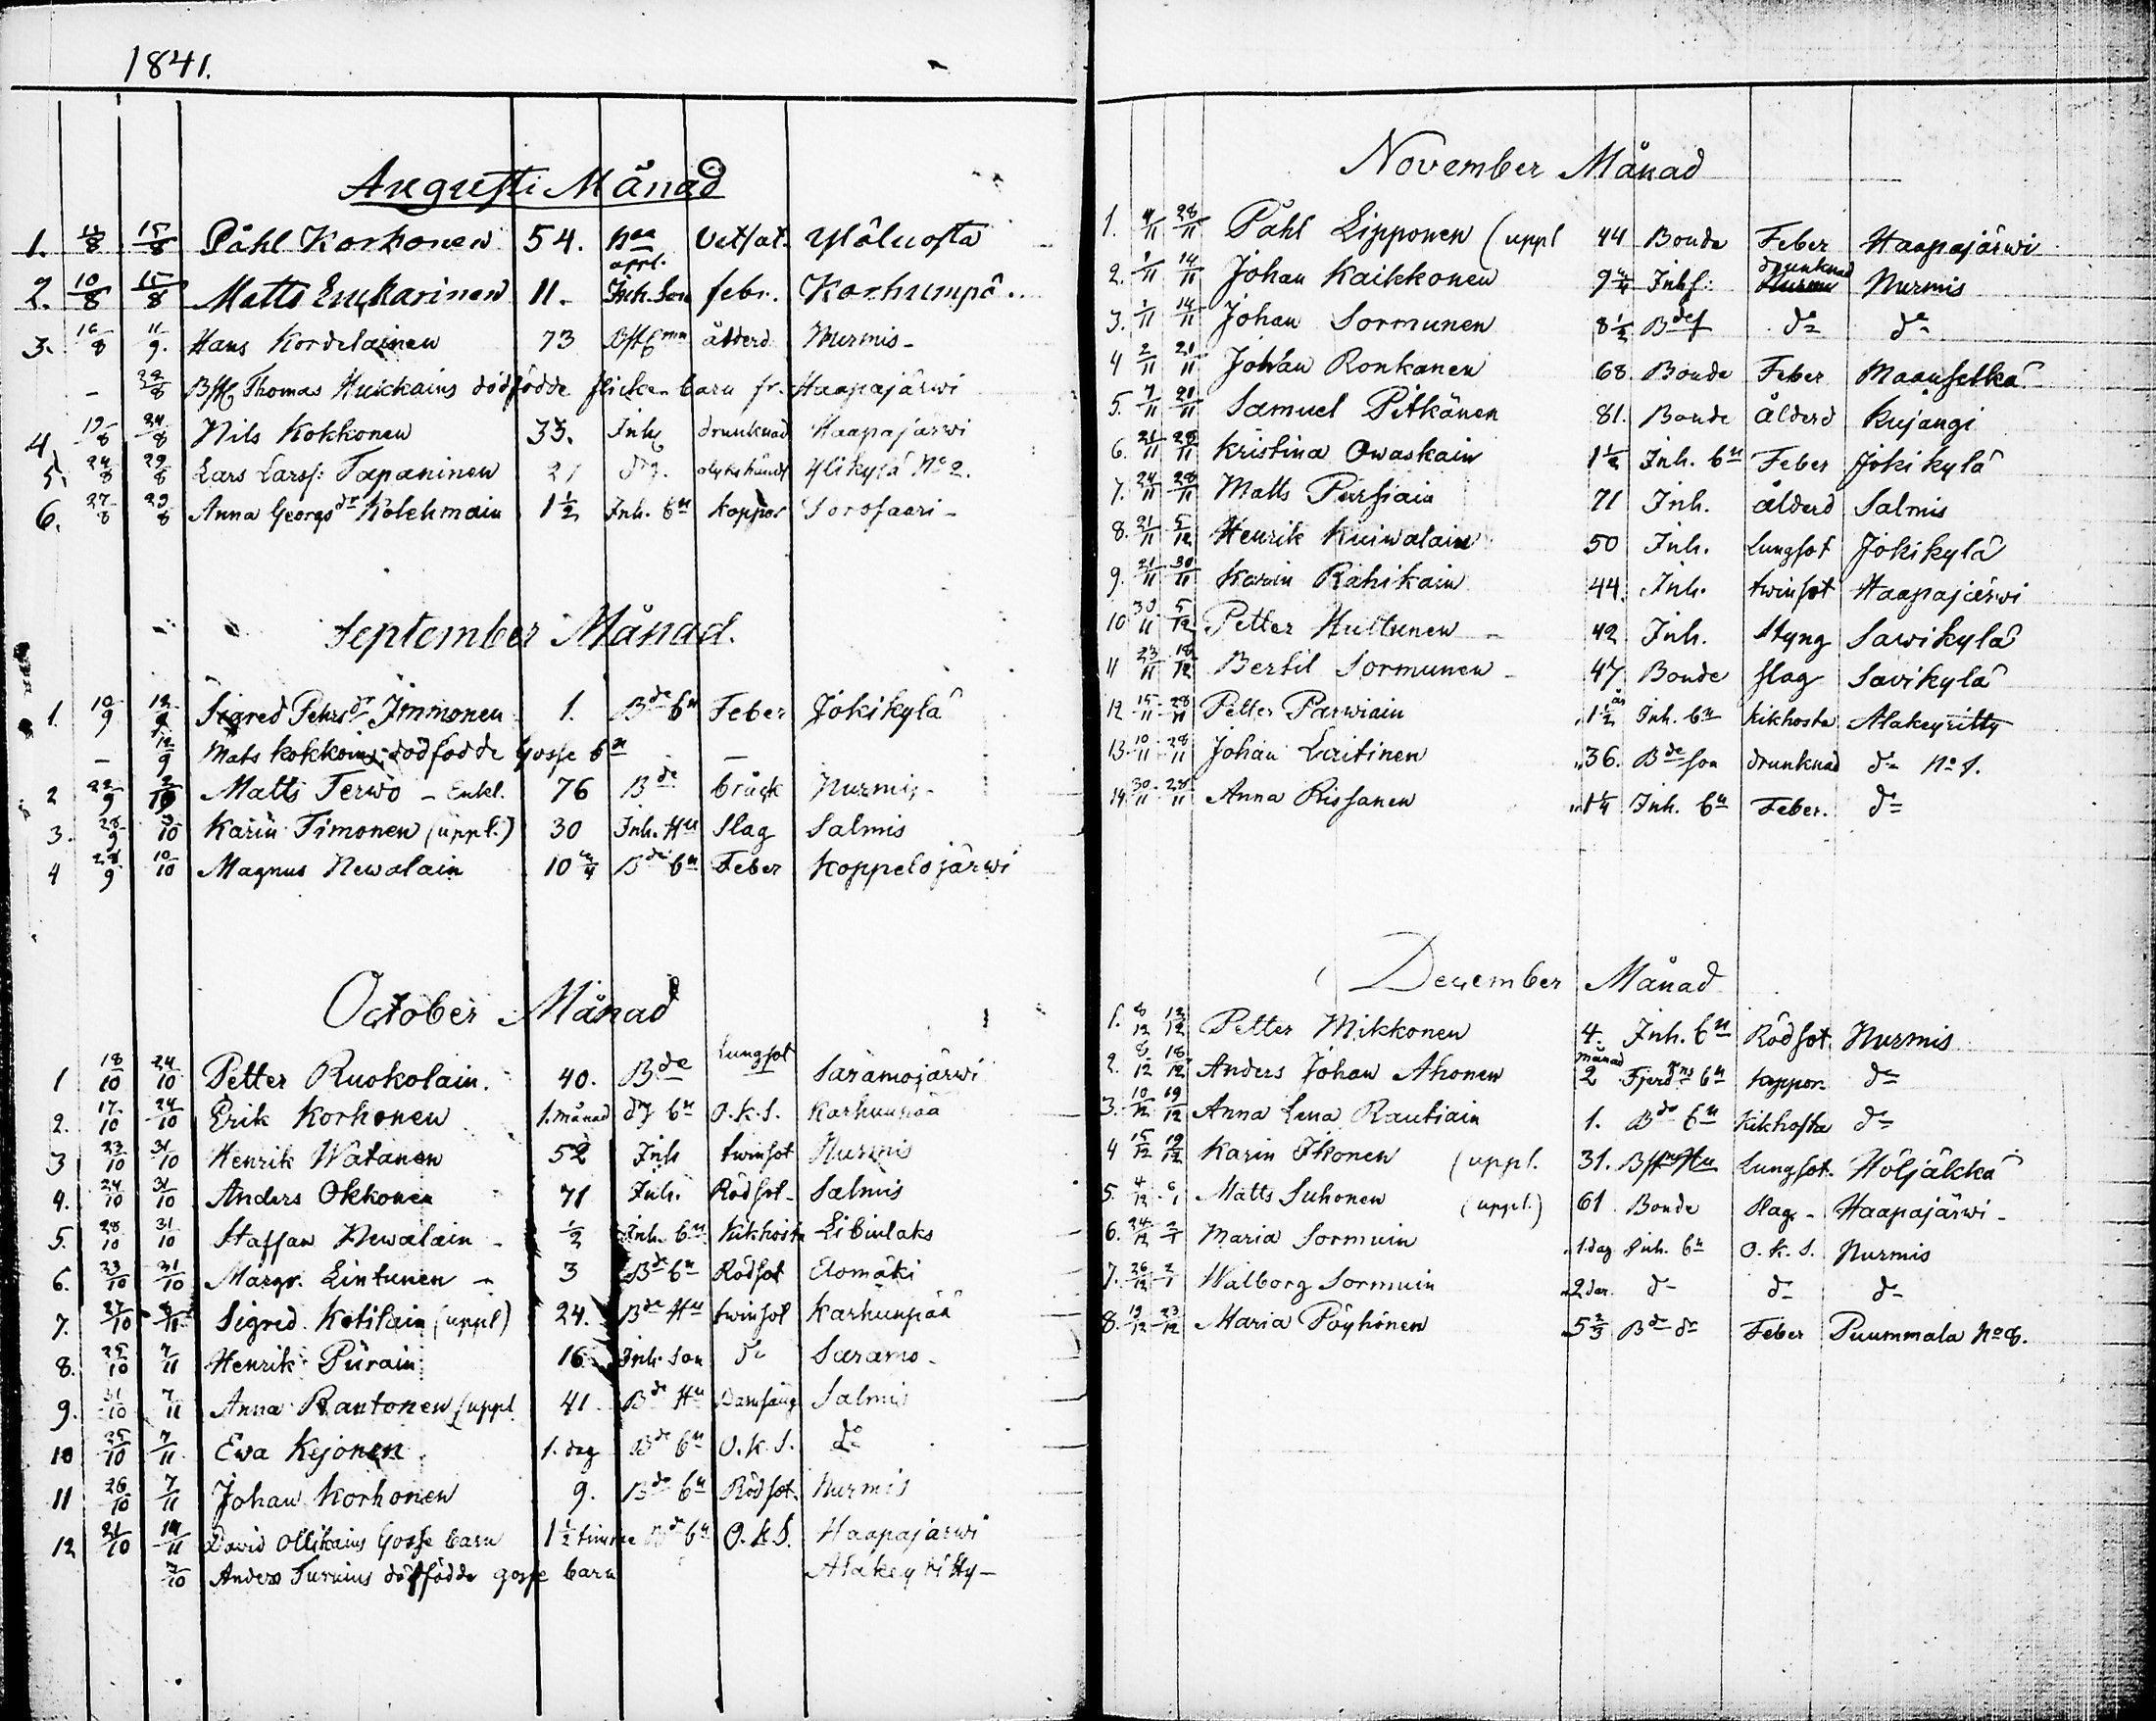 1841.
Augusti Månad
1. 8 15/8 Påhl Korhonen 54. Vatsot.
2. 10/8 15/8 Matts 11. Inh. Son febr. Karhunpä.
3. 16/8 11/9. Hans Kordelainen 73 ålderd Nurmis -
- 22/8 Thomas Hukkains dödfödde flicke barn fr. Haapajärwi
4 19/8 24/8 Nils Kokkonen 33. Inh drunknad Haapajärwi
5. 24/8 29/8 Lars Larss: Tapaninen 21 Ylikylä No 2.
6. 27/8 29/8 Anna Georgsdr Kolehmain 1½ Inh. bn koppor Sorosaari -
September Månad.
1. 10/9 12/9 Sigred Pehrsdr Immonen 1. Bde bn Feber Jokikylä
- 12/9 Mats Kokkoins dödfödde Gosse bn -
2 22/9 3/10 Matts Terwo - Enkl. 76 Bde bråck Nurmis -
3. 28/9 3/10 Karin Timonen (uppl.) 30 Inh. Hu Slag Salmis
4 28/9 10/10 Magnus Newalain 10¾ Bde bn Feber Koppelojärwi
October Månad
1 18/10 24/10 Petter Ruokolain. 40. Bde Lungsot Saramojärwi
2. 17/10 24/10 Erik Korhonen 1. månad bn O.k.S. Karhunpää
3 23/10 31/10 Henrik Watanen 52 Inh twinsot Nurmis
4. 24/10 31/10 Anders Okkonen 71 Inh. Rödsot - Salmis
5. 28/10 31/10 Staffan Newalain - ½ Inh. bn Kikhosta Libinlaks
6. 23/10 31/10 Margr. Lintunen - 3 Bde bn Rödsot Elomäki
7. 27/10 /11 Sigred Kotilain (uppl) 24. Bde Hu twinsot Karhunpää
8. 25/10 7/11 Henrik Pürain 16 Inh. Son do Saramo -
9. 31/10 7/11 Anna Rantonen (uppl 41. Bde Hu Barnsäng Salmis
10 25/10 7/11 Ewa Kejonen 1. dag Bde bn O.k.S. do
11 26/10 7/11 Johan Korhonen 9. Bde bn Rödsot. Nurmis
12 21/10 14/11 David Ollikains Gosse barn 1½ timme Bde bn O.k.S. Haapajärwi
/10 Anders Turuins dödfödde gosse barn Alakeyritty -
November Månad
1. 4/11 28/11 Påhl Lipponen (uppl 44 Bonde Feber Haapajärwi
2. 1/11 14/11 Johan Kaikkonen 9¾ Inhs: drunknad Nurmis
3. 1/11 14/11 Johan Sormunen 8½ Bdes do do
4 2/11 21/11 Johan Ronkanen 68. Bonde Feber Maanselkä
5. 7/11 21/11 Samuel Pitkänen 81. Bonde ålderd Kujangi
6. 21/11 28/11 Kristina Owaskain 1½ Inh. bn Feber Jokikylä
7. 24/11 28/11 Matts Pursiain 71 Inh. ålderd Salmis
8. 21/11 5/12 Henrik Kuiwalain 50 Inh. Lungsot Jokikylä
9. 21/11 30/11 Karin Rahikain 44. Inh. twinsot Haapajärwi
10 30/11 5/12 Petter Hultunen - 42 Inh. Styng Sawikylä
11 23/11 18/12 Bertil Sormunen - 47 Bonde slag Savikylä
12 15/11 28/11 Petter Parwiain 1½ år Inh. bn Kikhosta Alakeyritty
13. 10/11 28/11 Johan Laitinen 36. Bde son drunknad do No 1.
14. 30/11 28/11 Anna Rissanen 1¼ Inh. bn Feber. do
December Månad
1. 8/12 12/12 Petter Mikkonen 4. Inh. bn Rödsot. Nurmis
2. 8/12 18/12 Anders Johan Ahonen 2 månad bn koppor do
3. 10/12 19/12 Anna Lena Rautiain 1. Bde bn Kikhosta do
4 15/12 19/12 Karin Ikonen (uppl. 31. Lungsot. Höljäkkä
5. 4/12 6/1 Matts Suhonen (uppl.) 61 Bonde Slag - Haapajärwi -
6. 24/12 2/1 Maria Sormuin 1. dag Inh. bn O.k.S. Nurmis
7. 26/12 2/1 Walborg Sormuin 2 dar. do do do
8. 19/12 23/12 Maria Pöyhönen 5⅔ Bde dr Feber Puummala No 8.